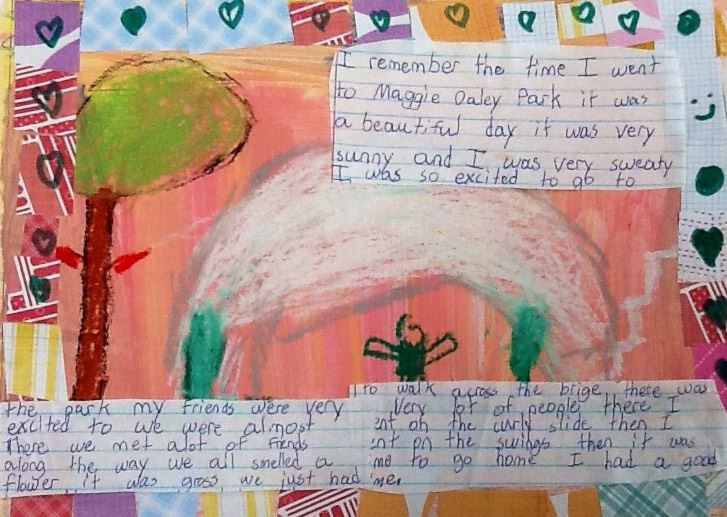 I remember the time I went
to Maggie Daley Park it was
a beautiful day it was very
sunny and I was very sweaty
I was so excited to go to
the park my friends were very
excited to we were almost
There we met alot of friends
along the way we all smelled a
flower it was gross we just had
to walk across the brige there was
Very lot of people there I
ent on the curly slide then I
ent on the swings then it was
me to go home I had a good
me.